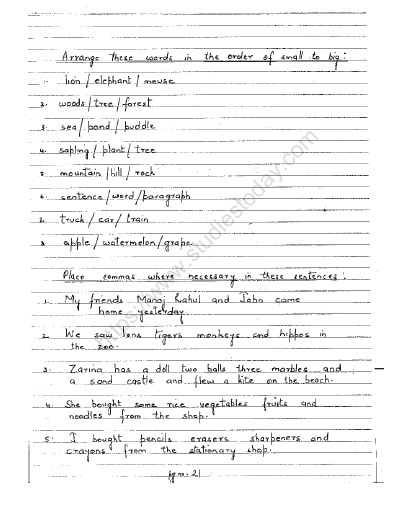 Arrange these words in the order of small to big:
1. lion / elephant / mouse
2. woods / tree / forest
3. sea / pond / puddle
4. sapling / plant / tree
5. mountain / hill / rock
6. sentence / word / paragraph
7. truck / car / train
8. apple / watermelon / grape
Place commas where necessary in these sentences:
1. My friends Manoj Rahul and John came
home yesterday.
2. We saw lions tigers monkeys and hippos in
the zoo.
3. Zarina has a doll two balls three marbles and
a sand castle and flew a kite on the beach.
4. She bought some rice vegetables fruits and
noodles from the shop.
5. I bought pencils erasers sharpeners and
crayons from the stationary shop.
pg no. 21
https://www.studiestoday.com